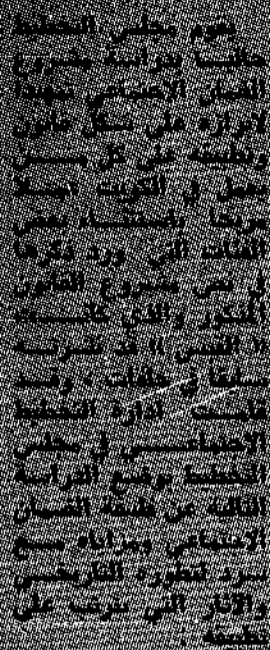 يقوم مجلس التخطيط
حاليا بدراسة مشروع
الضمان الاجتماعي تمهيدا
لاقراره على شكل قانون
وتطبيقه على كل مـــن
يعمل في الكويت عمـلا
مربحا باستثنـاء بعض
الفئات التي ورد ذكرها
في نص مشروع القانون
المذكور والذي كانـــت
« القبس » قد نشرتـــه
مسلسلا في حلقات ، وقـــد
قامـــت ادارة التخطيط
الاجتماعـــــي في مجلس
التخطيط بوضع الدراسة
التالية عن طبيعة الضمان
الاجتماعي ومزاياه مـــع
سرد لتطوره التاريخـــي
والآثار التي تترتب على
تطبيقه :